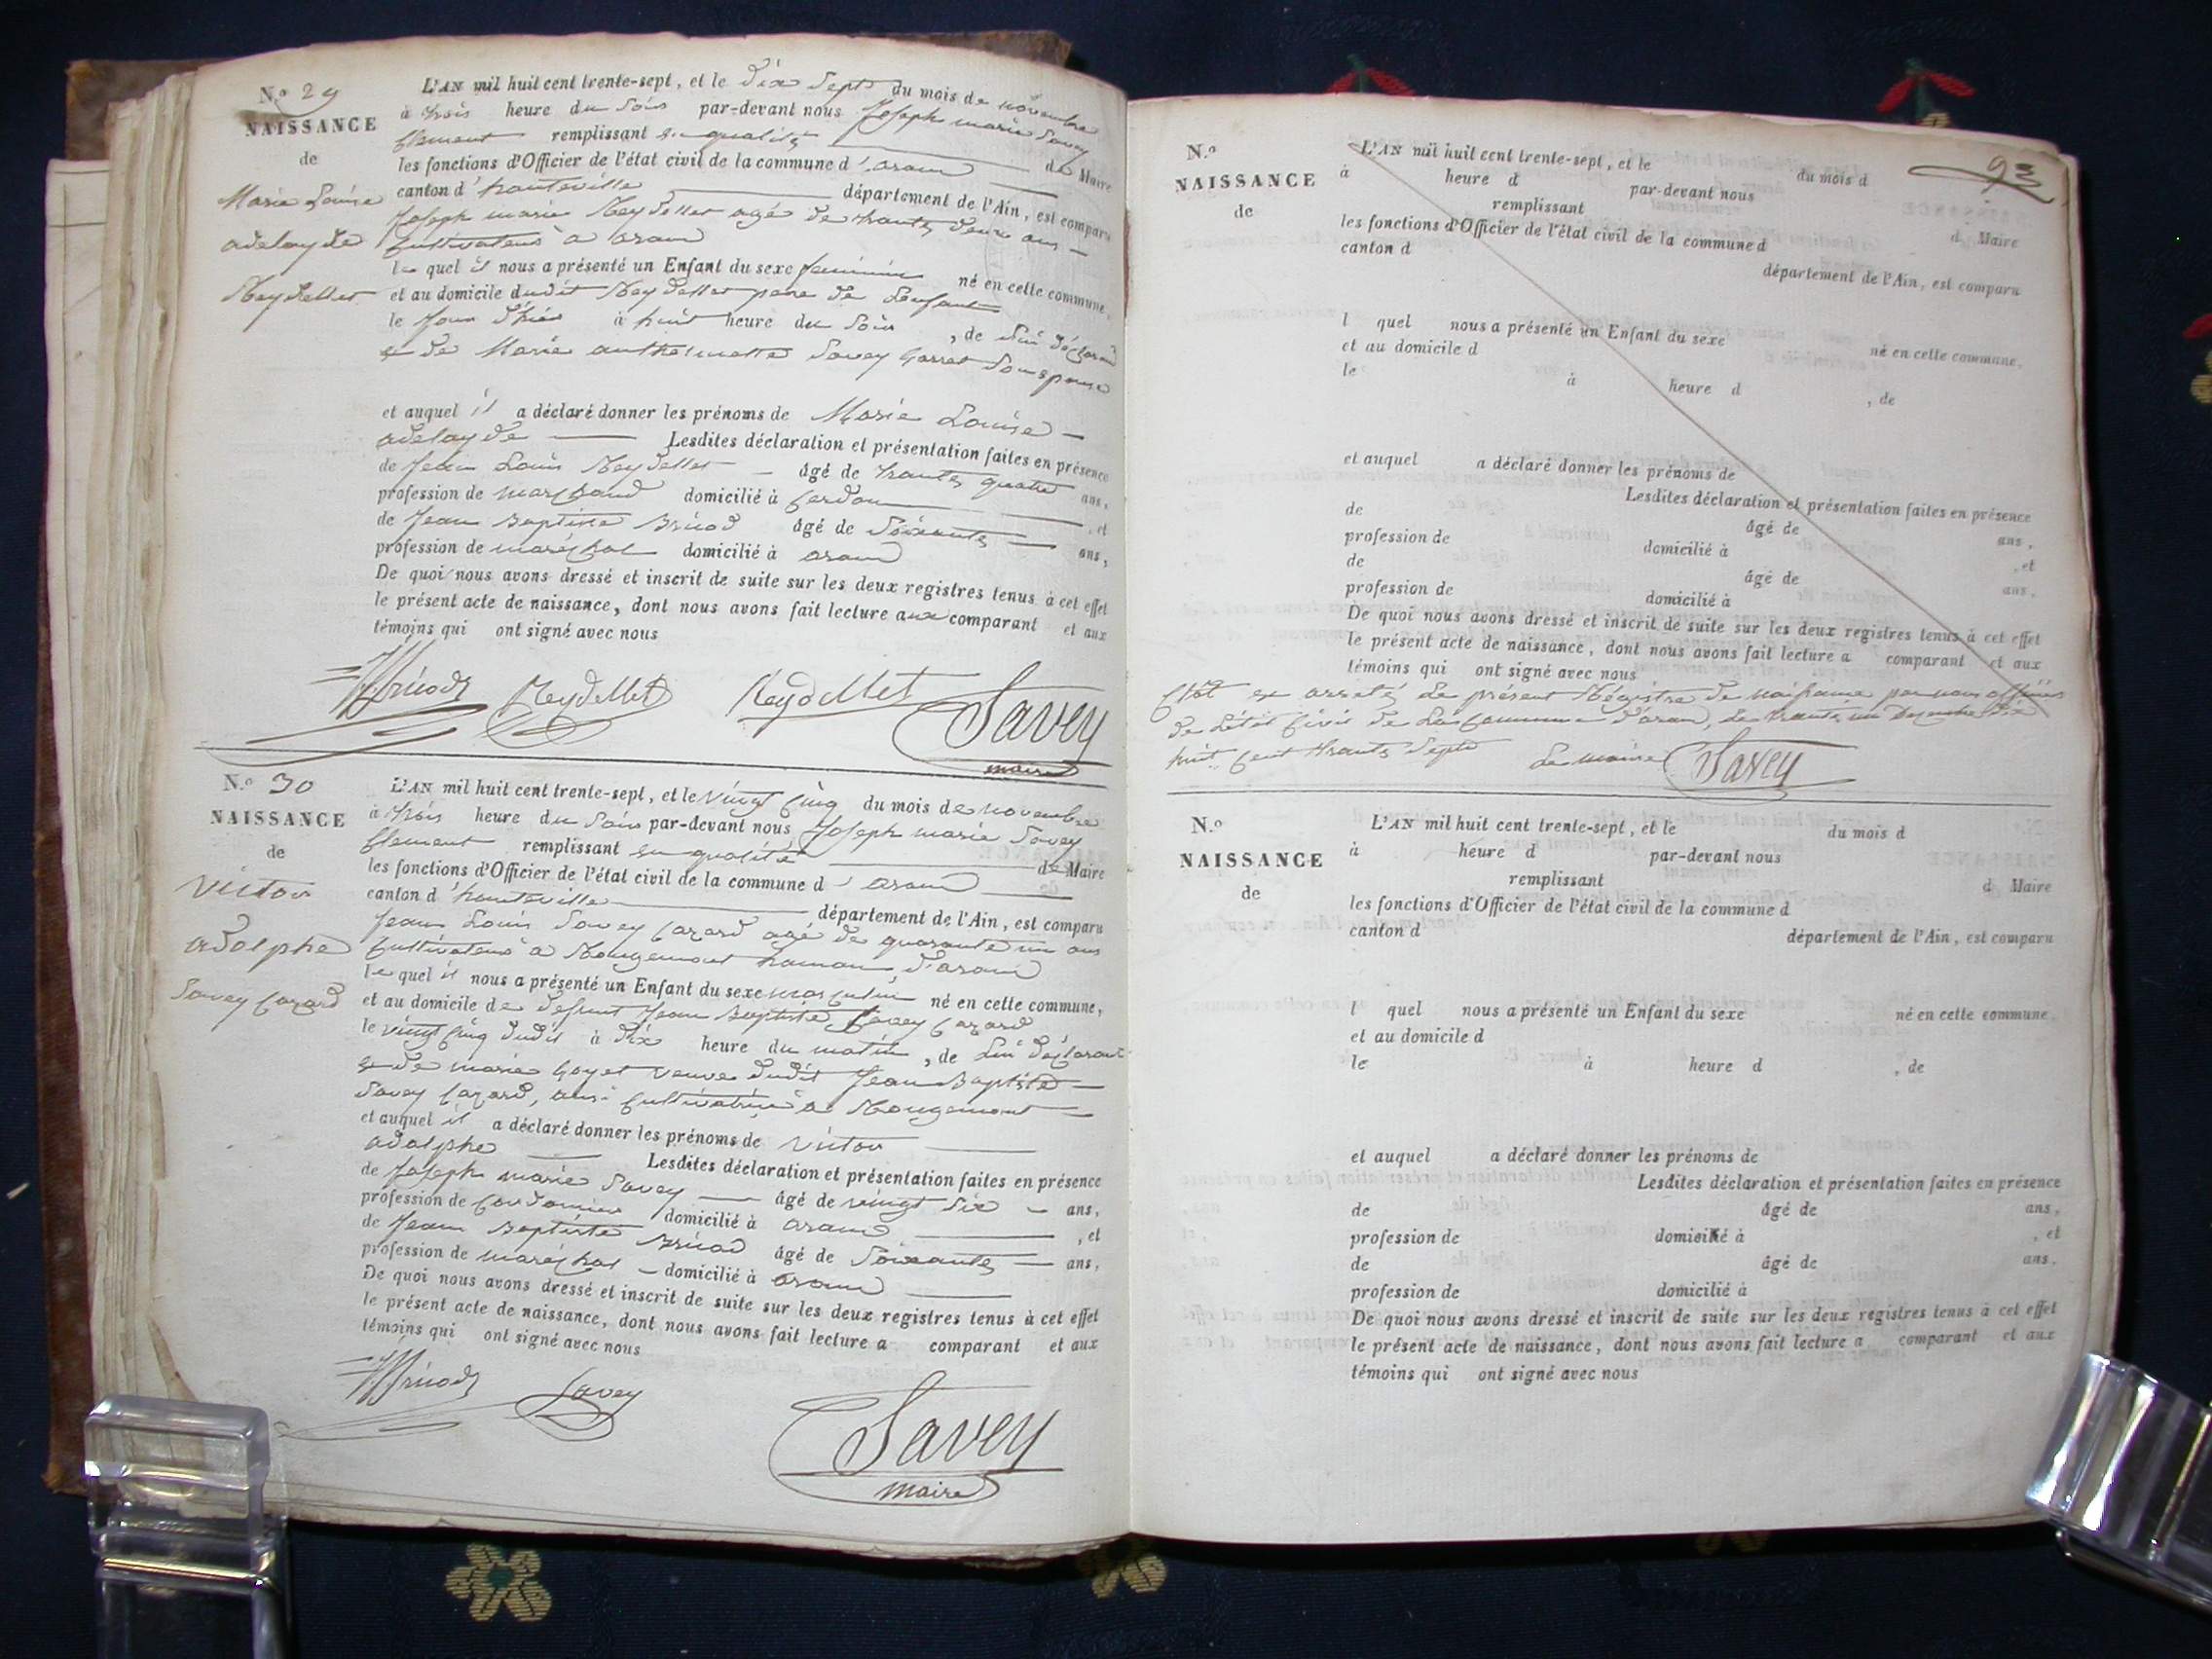 N.o 29
NAISSANCE
de
Marie Louise
adelayde
Reydellet
L'AN mil huit cent trente-sept, et le dix sept du mois de novembre
à trois heure du soir par-devant nous Joseph marie Savey
Clement remplissant en qualité de Maire
les fonctions d'Officier de l'état civil de la commune d'aranc
canton d'hauteville département de l'Ain, est comparu
Joseph marie Reydellet agé de trante deux ans
Cultivateur a aranc
le quel il nous a présenté un Enfant du sexe feminin né en cette commune,
et au domicile dudit Reydellet pere de Lenfant
le Jour d'hier à huit heure du soir, de lui déclarant
et de Marie anthelmette Savey Garret Son epouse
et auquel il a déclaré donner les prénoms de Marie Louise
adelayde Lesdites déclaration et présentation faites en présence
de Jean Louis Reydellet âgé de trante quatre ans,
profession de marchand domicilié à Cerdon, et
de Jean Baptiste Bricod âgé de Soixante ans,
profession de maréchal domicilié à aranc
De quoi nous avons dressé et inscrit de suite sur les deux registres tenus à cet effet
le présent acte de naissance, dont nous avons fait lecture aux comparant et aux
témoins qui ont signé avec nous
Bricod Reydellet Reydellet Savey
maire
N.o 30
NAISSANCE
de
Victor
adolphe
Savey Cazard
L'AN mil huit cent trente-sept, et le vingt cinq du mois de novembre
à trois heure du soir par-devant nous Joseph marie Savey
Clement remplissant en qualité de Maire
les fonctions d'Officier de l'état civil de la commune d'aranc
canton d'hauteville département de l'Ain, est comparu
Jean Louis Savey Cazard agé de quarante un ans
Cultivateur a Rougemont hameau d'aranc
le quel il nous a présenté un Enfant du sexe masculin né en cette commune,
et au domicile de defunt Jean Baptiste Savey Cazard
le vingt cinq dudit à dix heure du matin, de Lui déclarant
et de marie Goyet veuve dudit Jean Baptiste
Savey Cazard, aussi Cultivatrice a Rougemont
et auquel il a déclaré donner les prénoms de Victor
adolphe Lesdites déclaration et présentation faites en présence
de Joseph marie Savey âgé de vingt six ans,
profession de Cordonnier domicilié à aranc, et
de Jean Baptiste Bricod âgé de Soixante ans,
profession de maréchal domicilié à aranc
De quoi nous avons dressé et inscrit de suite sur les deux registres tenus à cet effet
le présent acte de naissance, dont nous avons fait lecture a comparant et aux
témoins qui ont signé avec nous
Bricod Savey
Savey
maire
93
N.o
NAISSANCE
de
L'AN mil huit cent trente-sept, et le du mois d
à heure d par-devant nous
remplissant d Maire
les fonctions d'Officier de l'état civil de la commune d
canton d département de l'Ain, est comparu
l quel nous a présenté un Enfant du sexe né en cette commune,
et au domicile d
le à heure d , de
et auquel a déclaré donner les prénoms de
Lesdites déclaration et présentation faites en présence
de âgé de ans,
profession de domicilié à , et
de âgé de ans,
profession de domicilié à
De quoi nous avons dressé et inscrit de suite sur les deux registres tenus à cet effet
le présent acte de naissance, dont nous avons fait lecture a comparant et aux
témoins qui ont signé avec nous
Clôt et arreté Le présent Régistre de naissance par nous officier
de Létat Civil de La Commune d'aranc, Le trante un Decembre dix
huit Cent trante Sept Le maire Savey
N.o
NAISSANCE
de
L'AN mil huit cent trente-sept, et le du mois d
à heure d par-devant nous
remplissant d Maire
les fonctions d'Officier de l'état civil de la commune d
canton d département de l'Ain, est comparu
l quel nous a présenté un Enfant du sexe né en cette commune,
et au domicile d
le à heure d , de
et auquel a déclaré donner les prénoms de
Lesdites déclaration et présentation faites en présence
de âgé de ans,
profession de domicilié à , et
de âgé de ans,
profession de domicilié à
De quoi nous avons dressé et inscrit de suite sur les deux registres tenus à cet effet
le présent acte de naissance, dont nous avons fait lecture a comparant et aux
témoins qui ont signé avec nous